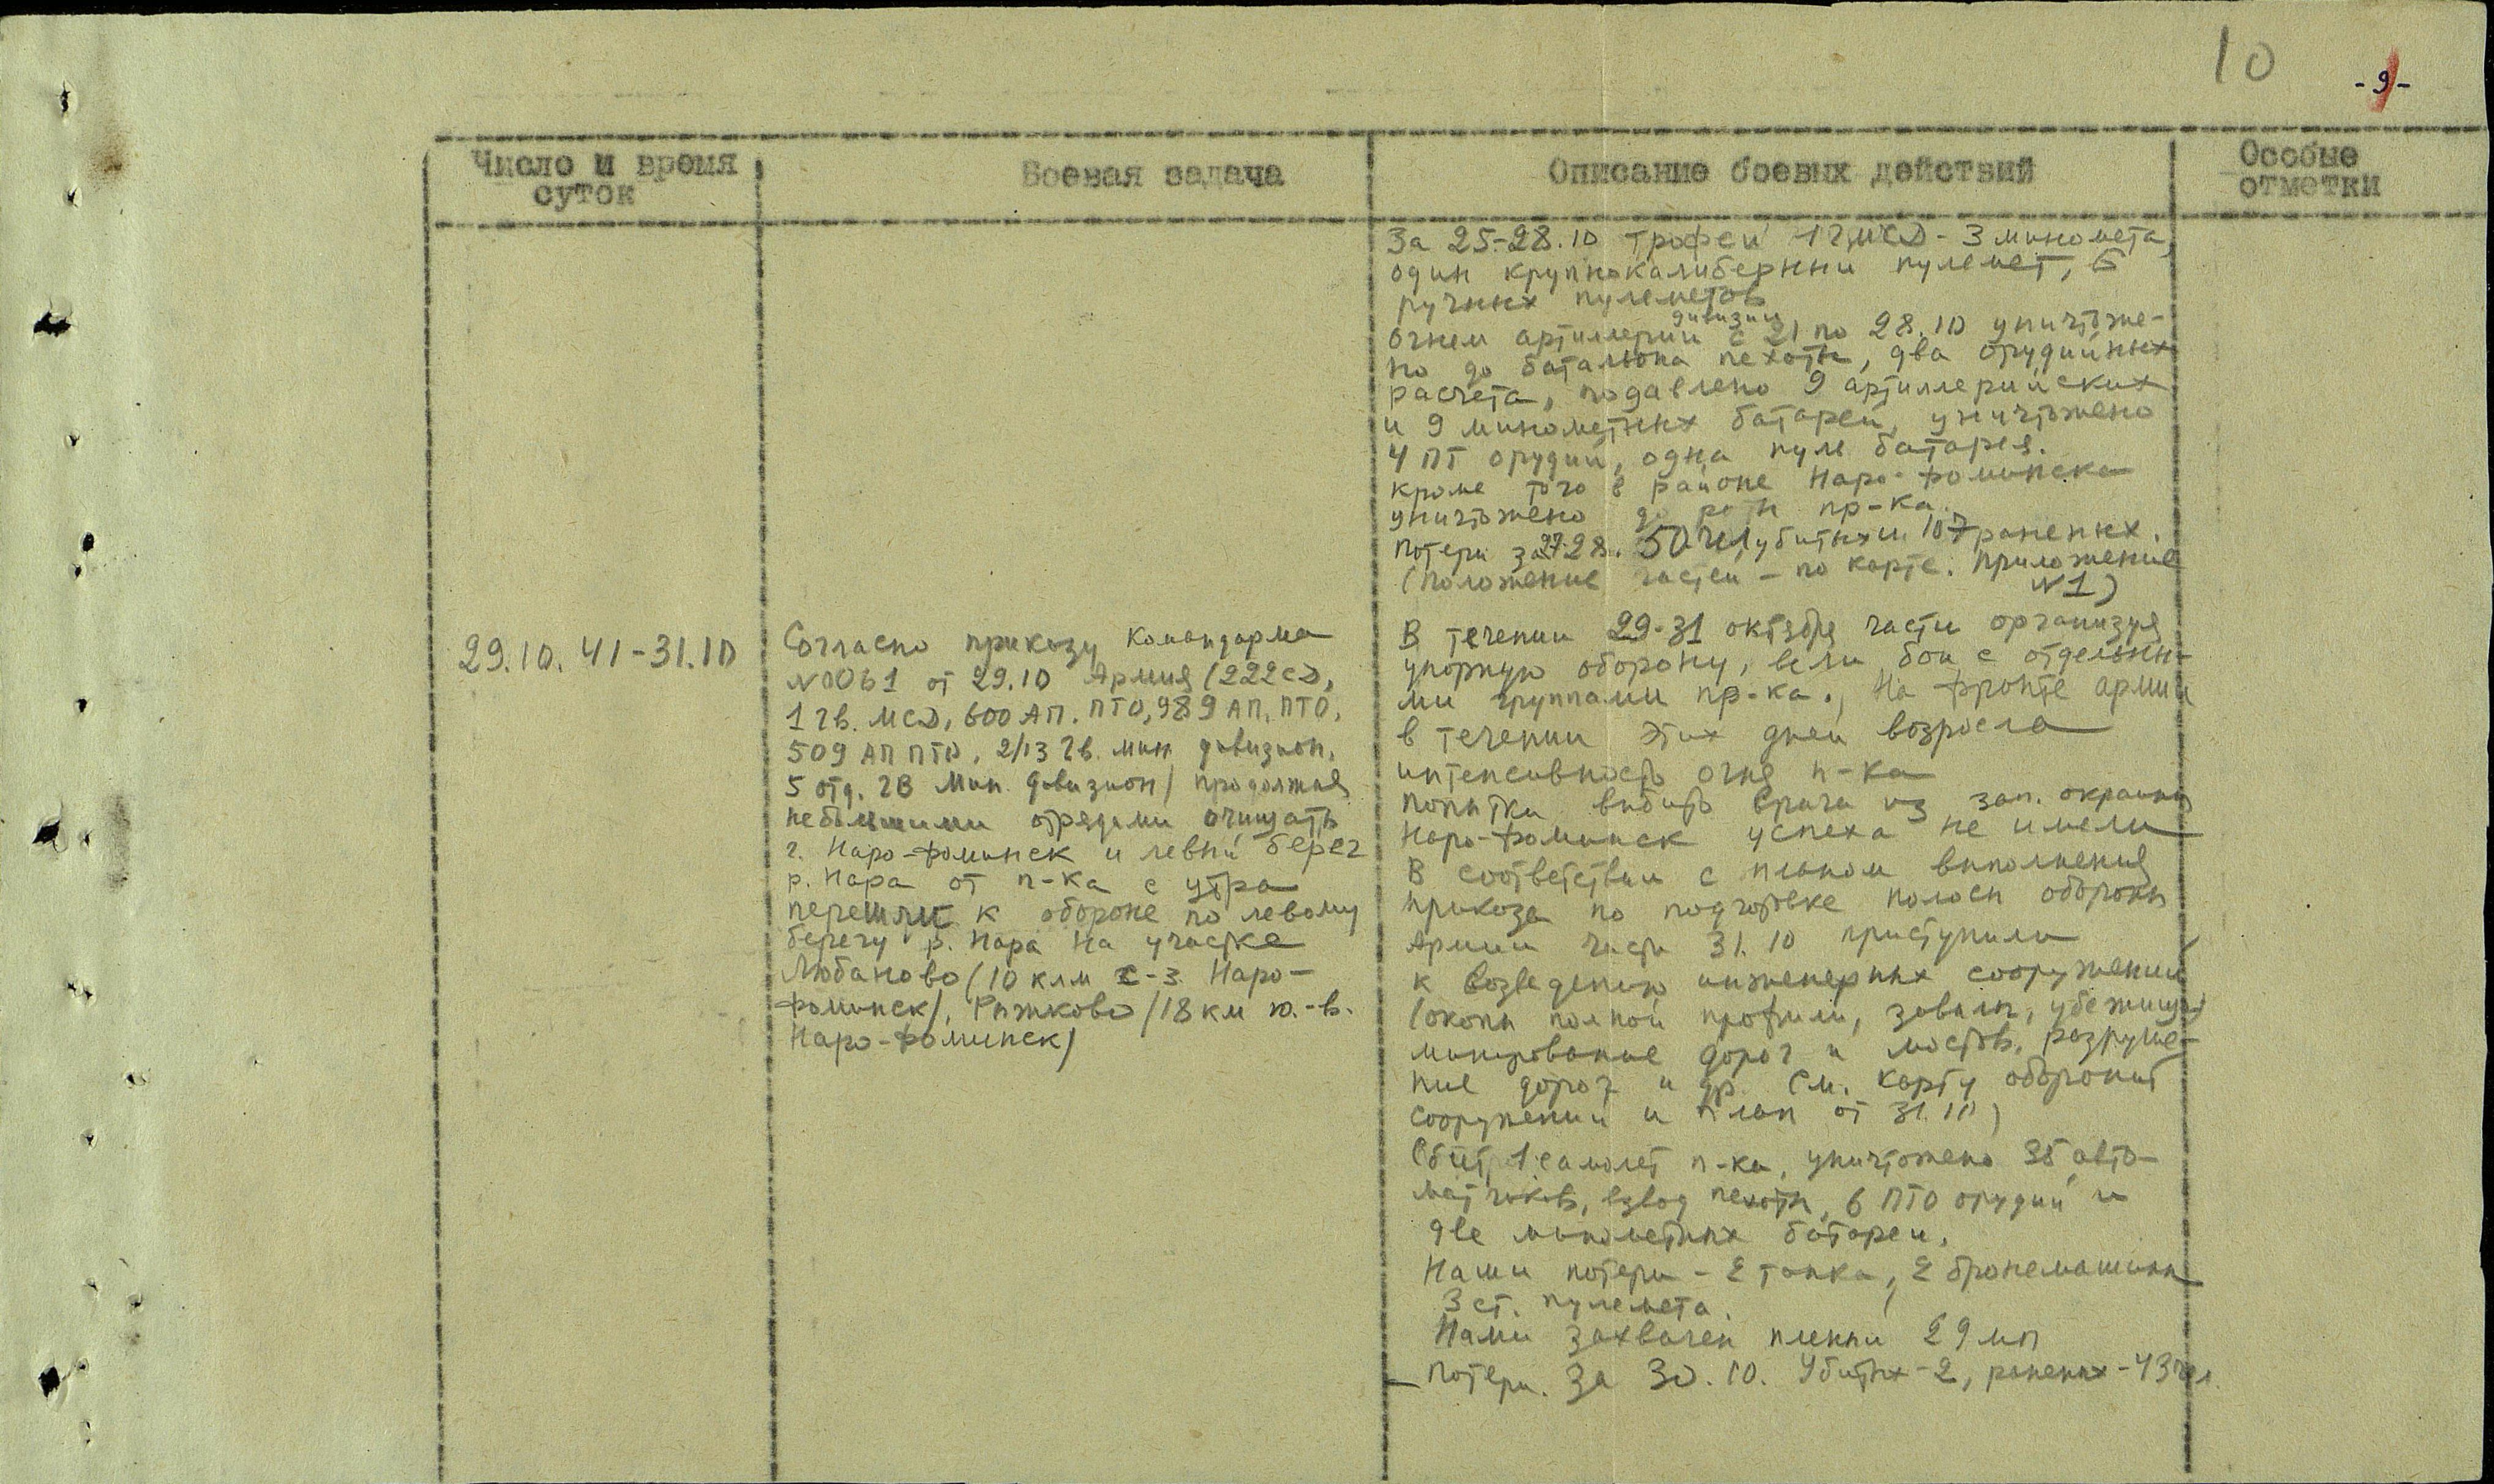 10
- 9 -
Число и время
суток
Боевая задача
Описание боевых действий
Особые
отметки
За 25-28.10 трофеи 1 гмсд - 3 миномета,
один крупнокалиберный пулемет, 6
ручных пулеметов
дивизии
Огнем артиллерии с 21 по 28.10 уничтоже-
но до батальона пехоты, два орудийных
расчета, подавлено 9 артиллерийских
и 9 минометных батарей, уничтожено
4 ПТ орудий, одна пул батарея.
кроме того в районе Наро-Фоминска
уничтожено до роты пр-ка.
Потери за 27-28. 50 чел убитых и 107 раненых.
(Положение частей - по карте. приложение
№1)
29.10.41-31.10
Согласно приказу Командарма
№0061 от 29.10 Армия (222сд,
1 гв. мсд, 600 АП. ПТО, 989 АП. ПТО,
509 АП ПТО, 2/13 гв. мин дивизион,
5 отд. гв мин. дивизион) продолжая
небольшими отрядами очищать
г. Наро-Фоминск и левый берег
р. Нара от п-ка с утра
перешли к обороне по левому
берегу р. Нара на участке
Любаново (10 клм с-з. Наро-
Фоминск), Рыжково (18 км ю.-в.
Наро-Фоминск)
В течении 29-31 октября части организуя
упорную оборону, вели бои с отдельны-
ми группами пр-ка. На фронте армии
в течении этих дней возросла
интенсивность огня п-ка
попытки выбить врага из зап. окраины
Наро-Фоминск успеха не имели
В соответствии с планом выполнения
приказа по подготовке полосы обороны
Армии части 31.10 приступили
к возведению инженерных сооружений
(окопы полной профили, завалы, убежища,
минирование дорог и мостов, разруше-
ние дорог и др. См. карту оборонит
сооружений и план от 31.10)
Сбит 1 самолет п-ка, уничтожено 35 авто-
матчиков, взвод пехоты, 6 ПТО орудий и
две минометных батареи.
Наши потери - 2 танка, 2 бронемашины
3 ст. пулемета.
Нами захвачен пленный 29 мп
Потери. За 30.10. Убитых - 2, раненых - 43 чел.